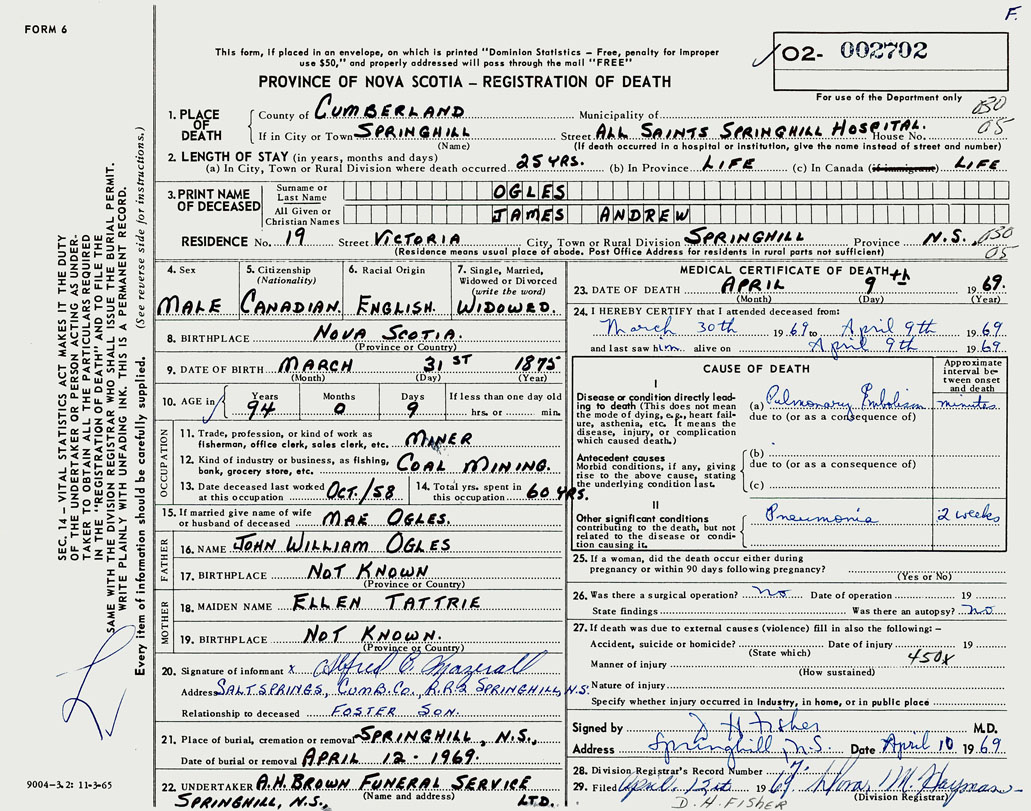 F.
FORM 6
This form, if placed in an envelope, on which is printed "Dominion Statistics – Free, penalty for improper
use $50," and properly addressed will pass through the mail "FREE"
PROVINCE OF NOVA SCOTIA – REGISTRATION OF DEATH
O2- 002702
For use of the Department only
030
05
1. PLACE OF DEATH
County of CUMBERLAND Municipality of
If in City or Town SPRINGHILL Street ALL SAINTS SPRINGHILL HOSPITAL. House No.
(Name) (If death occurred in a hospital or institution, give the name instead of street and number)
2. LENGTH OF STAY (in years, months and days)
(a) In City, Town or Rural Division where death occurred 25 YRS. (b) In Province LIFE (c) In Canada (if immigrant) LIFE
3. PRINT NAME OF DECEASED
Surname or Last Name OGLES
All Given or Christian Names JAMES ANDREW
RESIDENCE No. 19 Street VICTORIA City, Town or Rural Division SPRINGHILL Province N.S. 030
(Residence means usual place of abode. Post Office Address for residents in rural parts not sufficient) 05
4. Sex
MALE
5. Citizenship
(Nationality)
CANADIAN.
6. Racial Origin
ENGLISH.
7. Single, Married,
Widowed or Divorced
(write the word)
WIDOWED.
8. BIRTHPLACE NOVA SCOTIA.
(Province or Country)
9. DATE OF BIRTH MARCH 31ST 1875
(Month) (Day) (Year)
10. AGE in Years Months Days If less than one day old
94 0 9 hrs. or min.
OCCUPATION
11. Trade, profession, or kind of work as
fisherman, office clerk, sales clerk, etc. MINER
12. Kind of industry or business, as fishing,
bank, grocery store, etc. COAL MINING.
13. Date deceased last worked
at this occupation OCT./58
14. Total yrs. spent in
this occupation 60 YRS.
15. If married give name of wife
or husband of deceased MAE OGLES.
FATHER
16. NAME JOHN WILLIAM OGLES
17. BIRTHPLACE NOT KNOWN
(Province or Country)
MOTHER
18. MAIDEN NAME ELLEN TATTRIE
19. BIRTHPLACE NOT KNOWN.
(Province or Country)
20. Signature of informant x Alfred
Address SALTSPRINGS, CUMB. CO., R.R.2 SPRINGHILL, N.S.
Relationship to deceased FOSTER SON.
21. Place of burial, cremation or removal SPRINGHILL, N.S.,
Date of burial or removal APRIL 12 - 1969.
22. UNDERTAKER A.H. BROWN FUNERAL SERVICE
(Name and address)
SPRINGHILL, N.S. LTD.
MEDICAL CERTIFICATE OF DEATH
23. DATE OF DEATH APRIL 9th 1969.
(Month) (Day) (Year)
24. I HEREBY CERTIFY that I attended deceased from:
March 30th 1969 to April 9th 1969
and last saw him alive on April 9th 1969
CAUSE OF DEATH
Approximate
interval be-
tween onset
and death
I
Disease or condition directly lead-
ing to death (This does not mean
the mode of dying, e.g., heart fail-
ure, asthenia, etc. It means the
disease, injury, or complication
which caused death.)
(a) Pulmonary Embolism minutes
due to (or as a consequence of)
Antecedent causes
Morbid conditions, if any, giving
rise to the above cause, stating
the underlying condition last.
(b)
due to (or as a consequence of)
(c)
II
Other significant conditions
contributing to the death, but not
related to the disease or condi-
tion causing it.
Pneumonia 2 weeks
25. If a woman, did the death occur either during
pregnancy or within 90 days following pregnancy?
(Yes or No)
26. Was there a surgical operation? no Date of operation 19
State findings Was there an autopsy? no
27. If death was due to external causes (violence) fill in also the following: –
Accident, suicide or homicide? Date of injury 19
(State which)
Manner of injury 450X
(How sustained)
Nature of injury
Specify whether injury occurred in Industry, in home, or in public place
Signed by D H Fisher M.D.
Address Springhill, N.S. Date April 10 1969
28. Division Registrar's Record Number 7.
29. Filed April 12th 1969
(Division Registrar)
D.H. FISHER
SEC. 14 – VITAL STATISTICS ACT MAKES IT THE DUTY
OF THE UNDERTAKER OR PERSON ACTING AS UNDER-
TAKER TO OBTAIN ALL THE PARTICULARS REQUIRED
IN THE "REGISTRATION OF DEATH" AND TO FILE THE
SAME WITH THE DIVISION REGISTRAR WHO SHALL ISSUE THE BURIAL PERMIT.
WRITE PLAINLY WITH UNFADING INK. THIS IS A PERMANENT RECORD.
Every item of information should be carefully supplied. (See reverse side for instructions.)
9004-3.2: 11-3-65